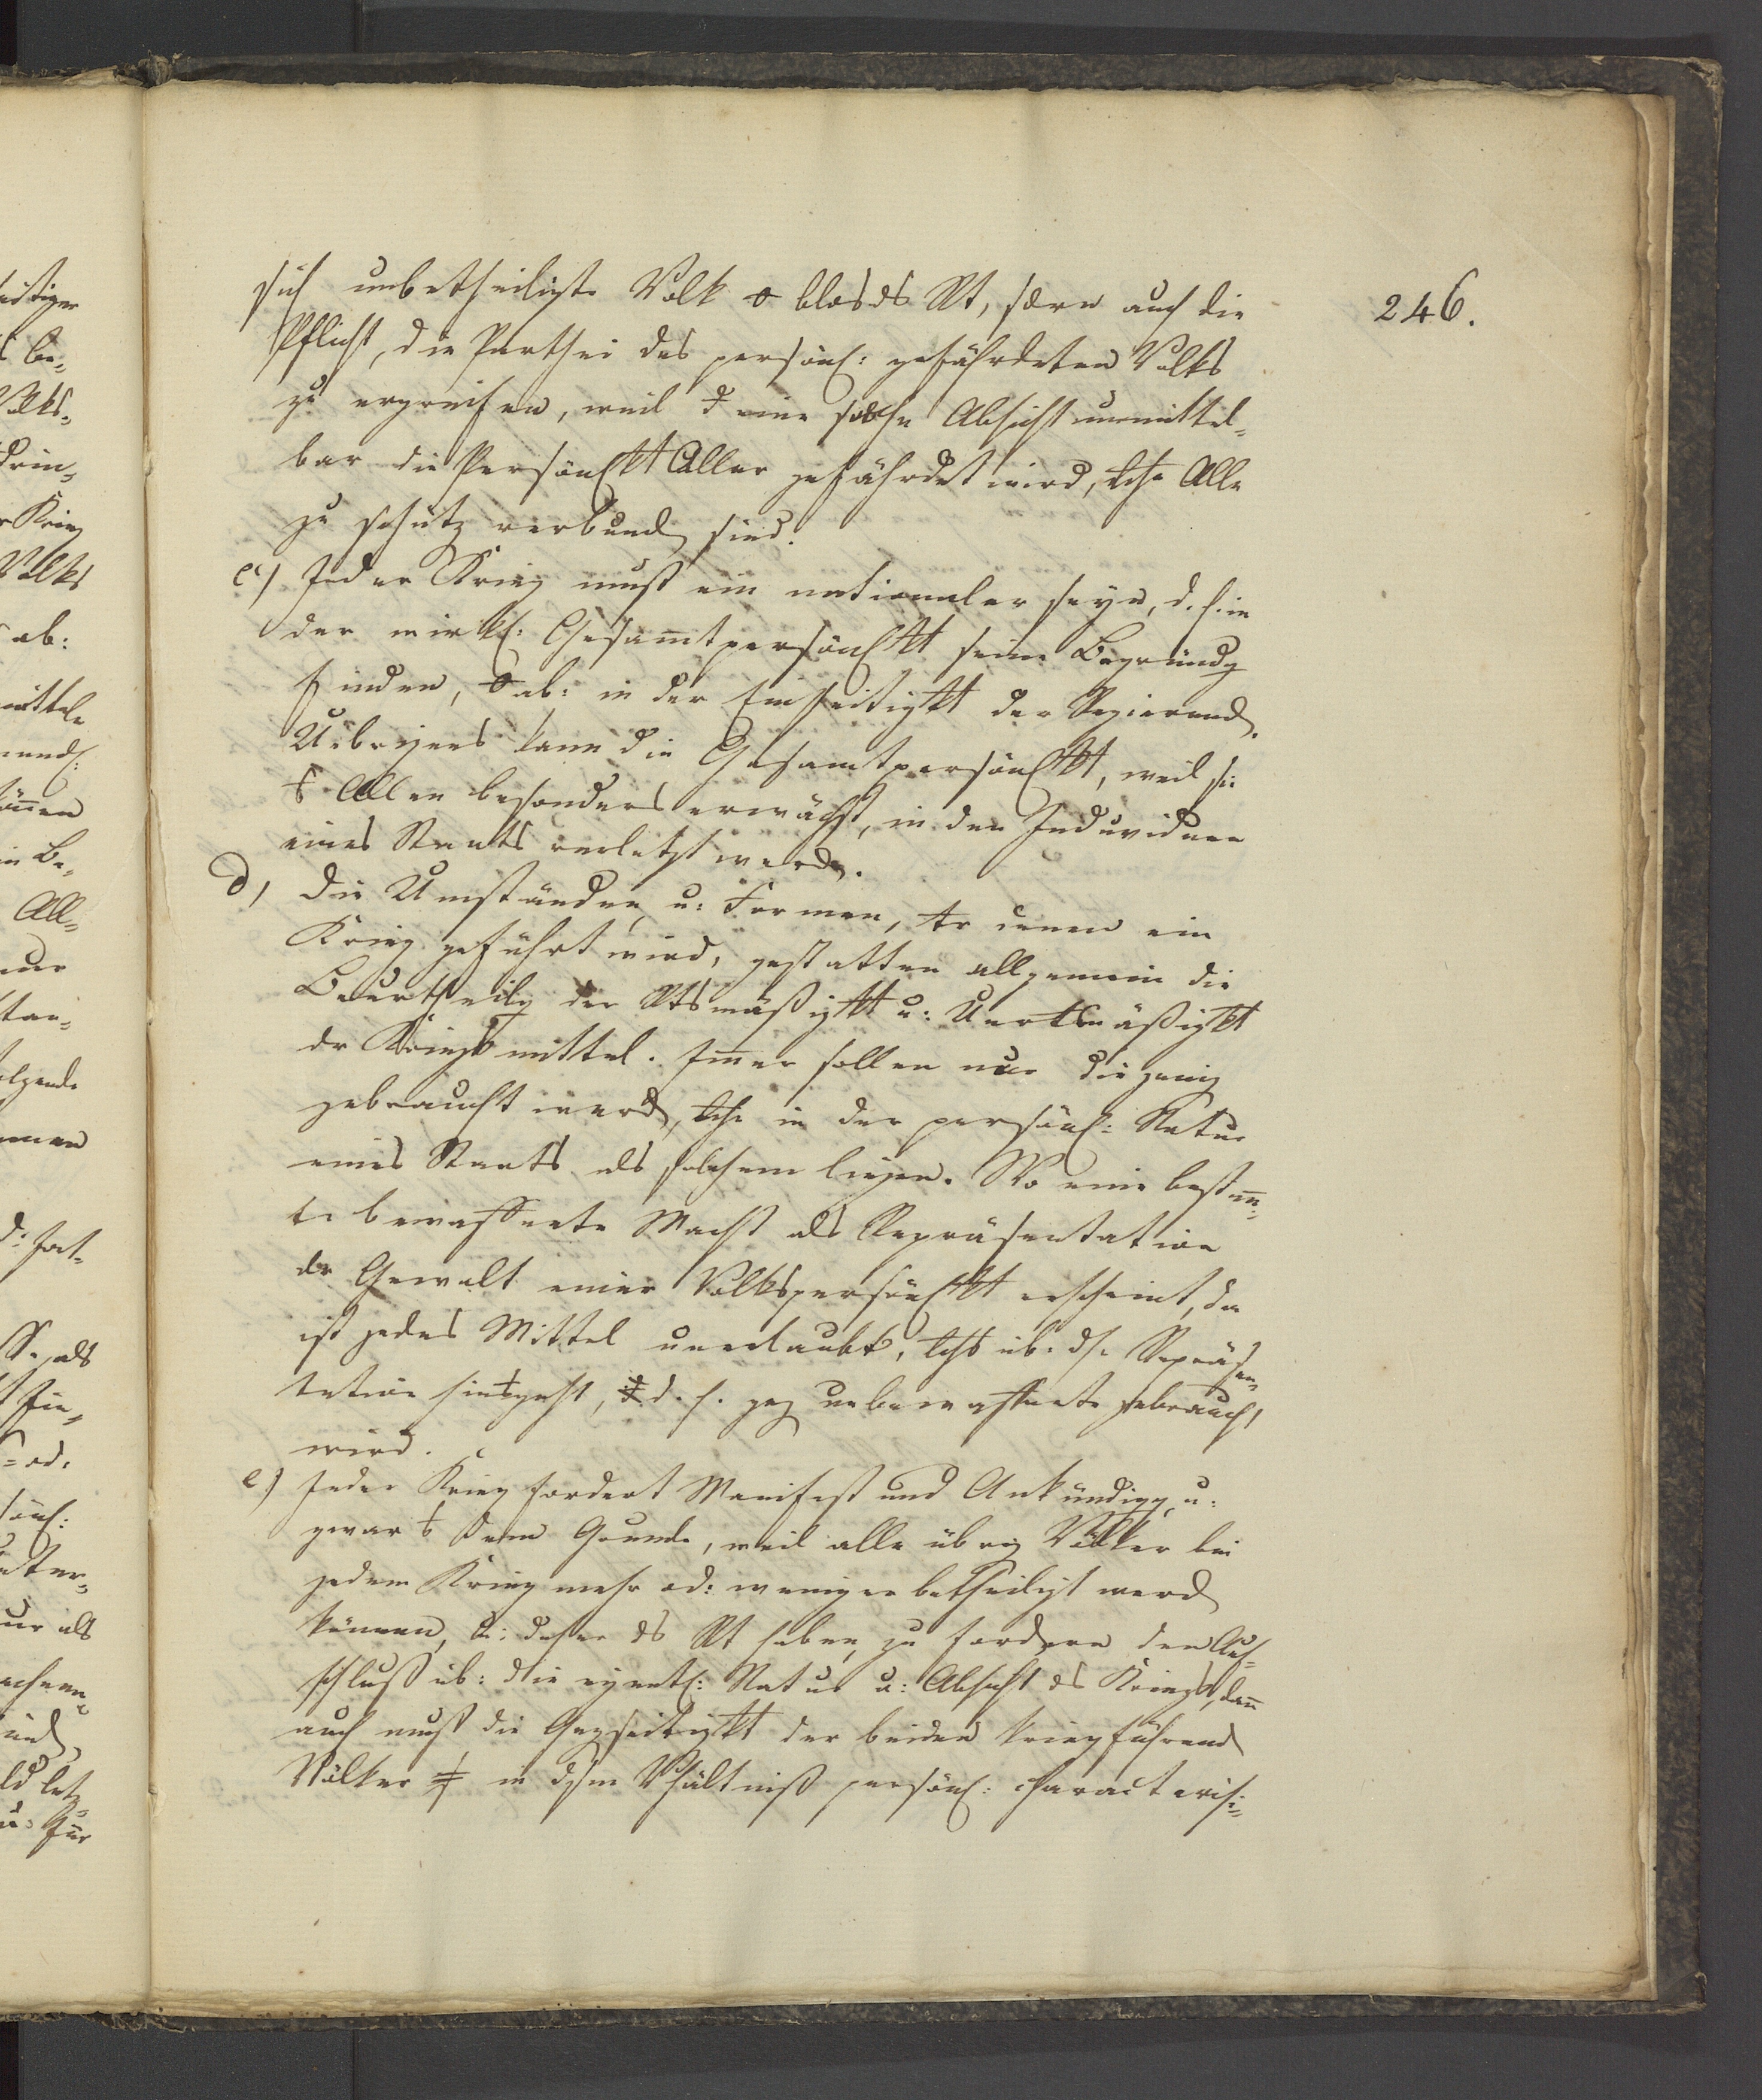 246.
sich unbetheiligte Volk o blos ds Rt, sdern auch die
Pflicht, die Parthei des persönl: gefährdeten Volks
zu ergreifen, weil d eine solche Absicht unmittel-
bar die Persönlkt Aller gefährdet wird, lche Alle
zu schütz verbund sind.
c) Jeder Krieg muß ein nationaler seyn, d. h. in
der wirkl: Gesamtpersönlkt seine Begründg
finden, o ab: in der Einseitigkt der Regierend.
Uebrigens kann die Gesamtpersönlkt, weil sie
Allen besonders erwächst, in den Individuen
eines Staats verletzt werd.
d, Die Umstände, u: Formen, tr denen ein
Krieg geführt wird, gestatten allgemein die
Beurtheilg der Rtsmäßigkt u: Unrtsmäßigkt
dr Kriegsmittel. Immer sollen nur diejenig
gebraucht werd, lche in der persönl: Natur
eines Staats als solchem liegen. Wo eine bestimm-
te bewaffnete Macht als Repräsentation
dr Gewalt einer Volkspersönlkt erscheint, da
ist jedes Mittel unerlaubt, lchs üb: dse Repräsen-
tation hinausgeht, d. h. geg unbewaffnete gebraucht
wird.
e) Jeder Krieg fordert Manifest und Ankündigg, u:
zwar dem Grunde, weil alle übrig Völker bei
jedem Krieg mehr od: weniger betheiligt werd
können, u: daher ds Rt haben, zu fordern den Auf-
schluß üb: die eigentl: Natur u: Absicht ds Kriegs, dann
auch muß die Gegseitigkt der beiden kriegführend
Völker in dsem Vhältniß persönl: characterisi-